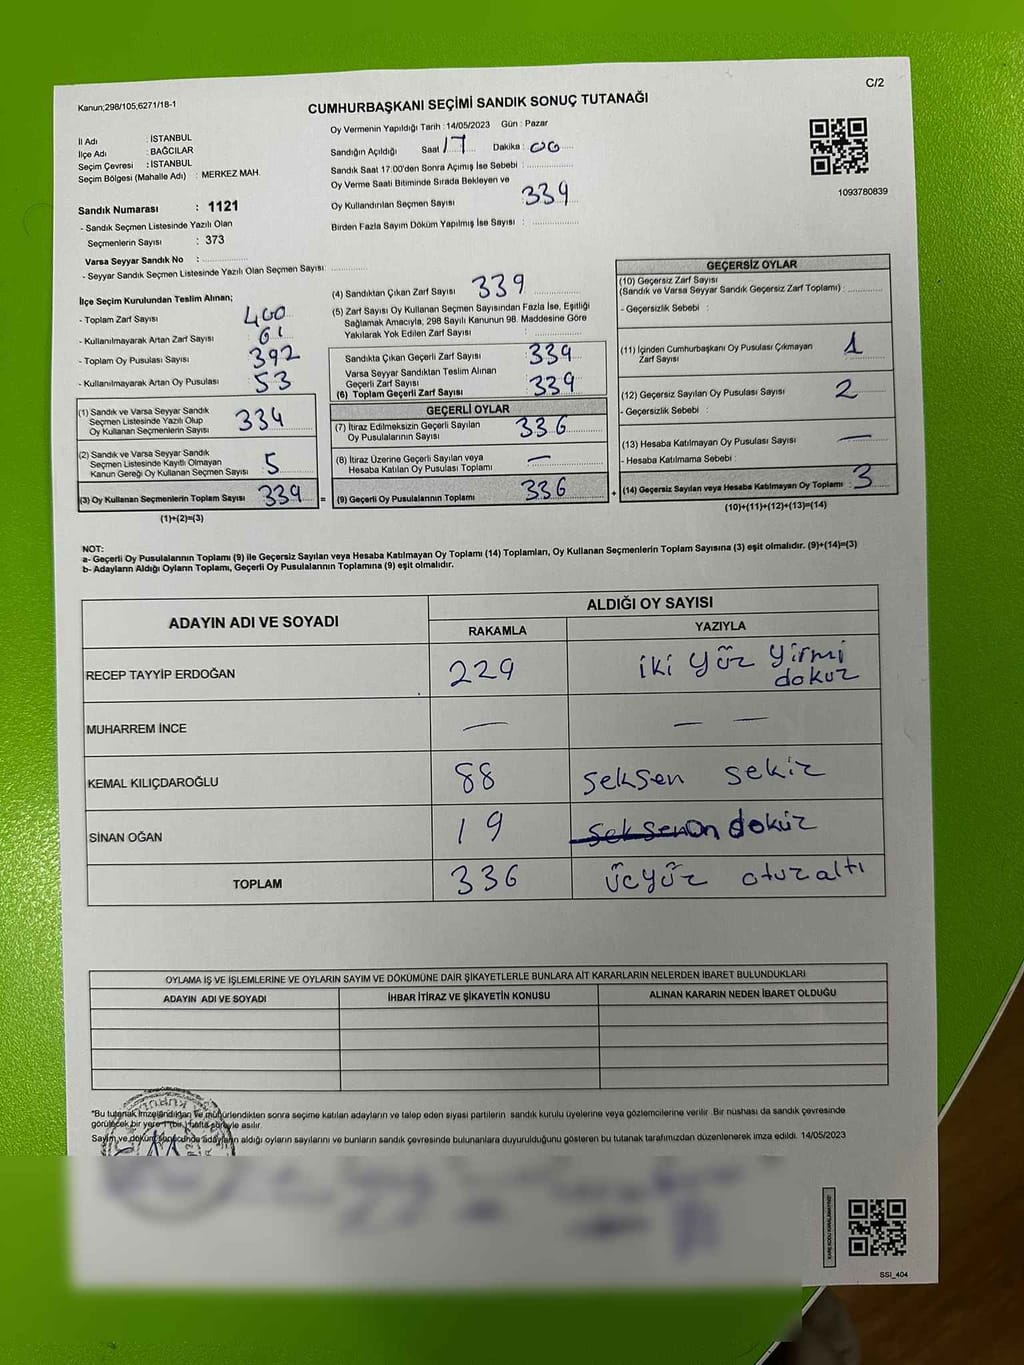 Kanun;298/105,6271/18-1
C/2
CUMHURBAŞKANI SEÇİMİ SANDIK SONUÇ TUTANAĞI
İl Adı : İSTANBUL
İlçe Adı : BAĞCILAR
Seçim Çevresi : İSTANBUL
Seçim Bölgesi (Mahalle Adı) : MERKEZ MAH.
Sandık Numarası : 1121
- Sandık Seçmen Listesinde Yazılı Olan
Seçmenlerin Sayısı : 373
Varsa Seyyar Sandık No :
- Seyyar Sandık Seçmen Listesinde Yazılı Olan Seçmen Sayısı:
Oy Vermenin Yapıldığı Tarih : 14/05/2023 Gün : Pazar
Sandığın Açıldığı Saat 17 Dakika : 00
Sandık Saat 17:00'den Sonra Açımış İse Sebebi :
Oy Verme Saati Bitiminde Sırada Bekleyen ve
Oy Kullandırılan Seçmen Sayısı : 339
Birden Fazla Sayım Döküm Yapılmış İse Sayısı :
1093780839
İlçe Seçim Kurulundan Teslim Alınan;
- Toplam Zarf Sayısı 400
- Kullanılmayarak Artan Zarf Sayısı 61
- Toplam Oy Pusulası Sayısı 392
- Kullanılmayarak Artan Oy Pusulası 53
(1) Sandık ve Varsa Seyyar Sandık
Seçmen Listesinde Yazılı Olup
Oy Kullanan Seçmenlerin Sayısı 334
(2) Sandık ve Varsa Seyyar Sandık
Seçmen Listesinde Kayıtlı Olmayan
Kanun Gereği Oy Kullanan Seçmen Sayısı 5
(3) Oy Kullanan Seçmenlerin Toplam Sayısı 339 =
(1)+(2)=(3)
(4) Sandıktan Çıkan Zarf Sayısı : 339
(5) Zarf Sayısı Oy Kullanan Seçmen Sayısından Fazla İse, Eşitliği
Sağlamak Amacıyla, 298 Sayılı Kanunun 98. Maddesine Göre
Yakılarak Yok Edilen Zarf Sayısı :
Sandıkta Çıkan Geçerli Zarf Sayısı : 339
Varsa Seyyar Sandıktan Teslim Alınan
Geçerli Zarf Sayısı
(6) Toplam Geçerli Zarf Sayısı : 339
GEÇERLİ OYLAR
(7) İtiraz Edilmeksizin Geçerli Sayılan
Oy Pusulalarının Sayısı 336
(8) İtiraz Üzerine Geçerli Sayılan veya
Hesaba Katılan Oy Pusulası Toplamı : —
(9) Geçerli Oy Pusulalarının Toplamı : 336 +
GEÇERSİZ OYLAR
(10) Geçersiz Zarf Sayısı
(Sandık ve Varsa Seyyar Sandık Geçersiz Zarf Toplamı) :
- Geçersizlik Sebebi :
(11) İçinden Cumhurbaşkanı Oy Pusulası Çıkmayan
Zarf Sayısı 1
(12) Geçersiz Sayılan Oy Pusulası Sayısı : 2
- Geçersizlik Sebebi :
(13) Hesaba Katılmayan Oy Pusulası Sayısı : —
- Hesaba Katılmama Sebebi :
(14) Geçersiz Sayılan veya Hesaba Katılmayan Oy Toplamı : 3
(10)+(11)+(12)+(13)=(14)
NOT:
a- Geçerli Oy Pusulalarının Toplamı (9) ile Geçersiz Sayılan veya Hesaba Katılmayan Oy Toplamı (14) Toplamları, Oy Kullanan Seçmenlerin Toplam Sayısına (3) eşit olmalıdır. (9)+(14)=(3)
b- Adayların Aldığı Oyların Toplamı, Geçerli Oy Pusulalarının Toplamına (9) eşit olmalıdır.
ADAYIN ADI VE SOYADI
ALDIĞI OY SAYISI
RAKAMLA YAZIYLA
RECEP TAYYİP ERDOĞAN 229 iki yüz yirmi
dokuz
MUHARREM İNCE — — —
KEMAL KILIÇDAROĞLU 88 seksen sekiz
SİNAN OĞAN 19 seksen on dokuz
TOPLAM 336 üçyüz otuz altı
OYLAMA İŞ VE İŞLEMLERİNE VE OYLARIN SAYIM VE DÖKÜMÜNE DAİR ŞİKAYETLERLE BUNLARA AİT KARARLARIN NELERDEN İBARET BULUNDUKLARI
ADAYIN ADI VE SOYADI İHBAR İTİRAZ VE ŞİKAYETİN KONUSU ALINAN KARARIN NEDEN İBARET OLDUĞU
"Bu tutanak imzalandıktan ve mühürlendikten sonra seçime katılan adayların ve talep eden siyasi partilerin sandık kurulu üyelerine veya gözlemcilerine verilir. Bir nüshası da sandık çevresinde
görülecek bir yere 1 (bir) hafta süreyle asılır.
Sayım ve döküm sonucunda adayların aldığı oyların sayılarını ve bunların sandık çevresinde bulunanlara duyurulduğunu gösteren bu tutanak tarafımızdan düzenlenerek imza edildi. 14/05/2023
KAREKODU KARALAMAYINIZ!
SSI_404